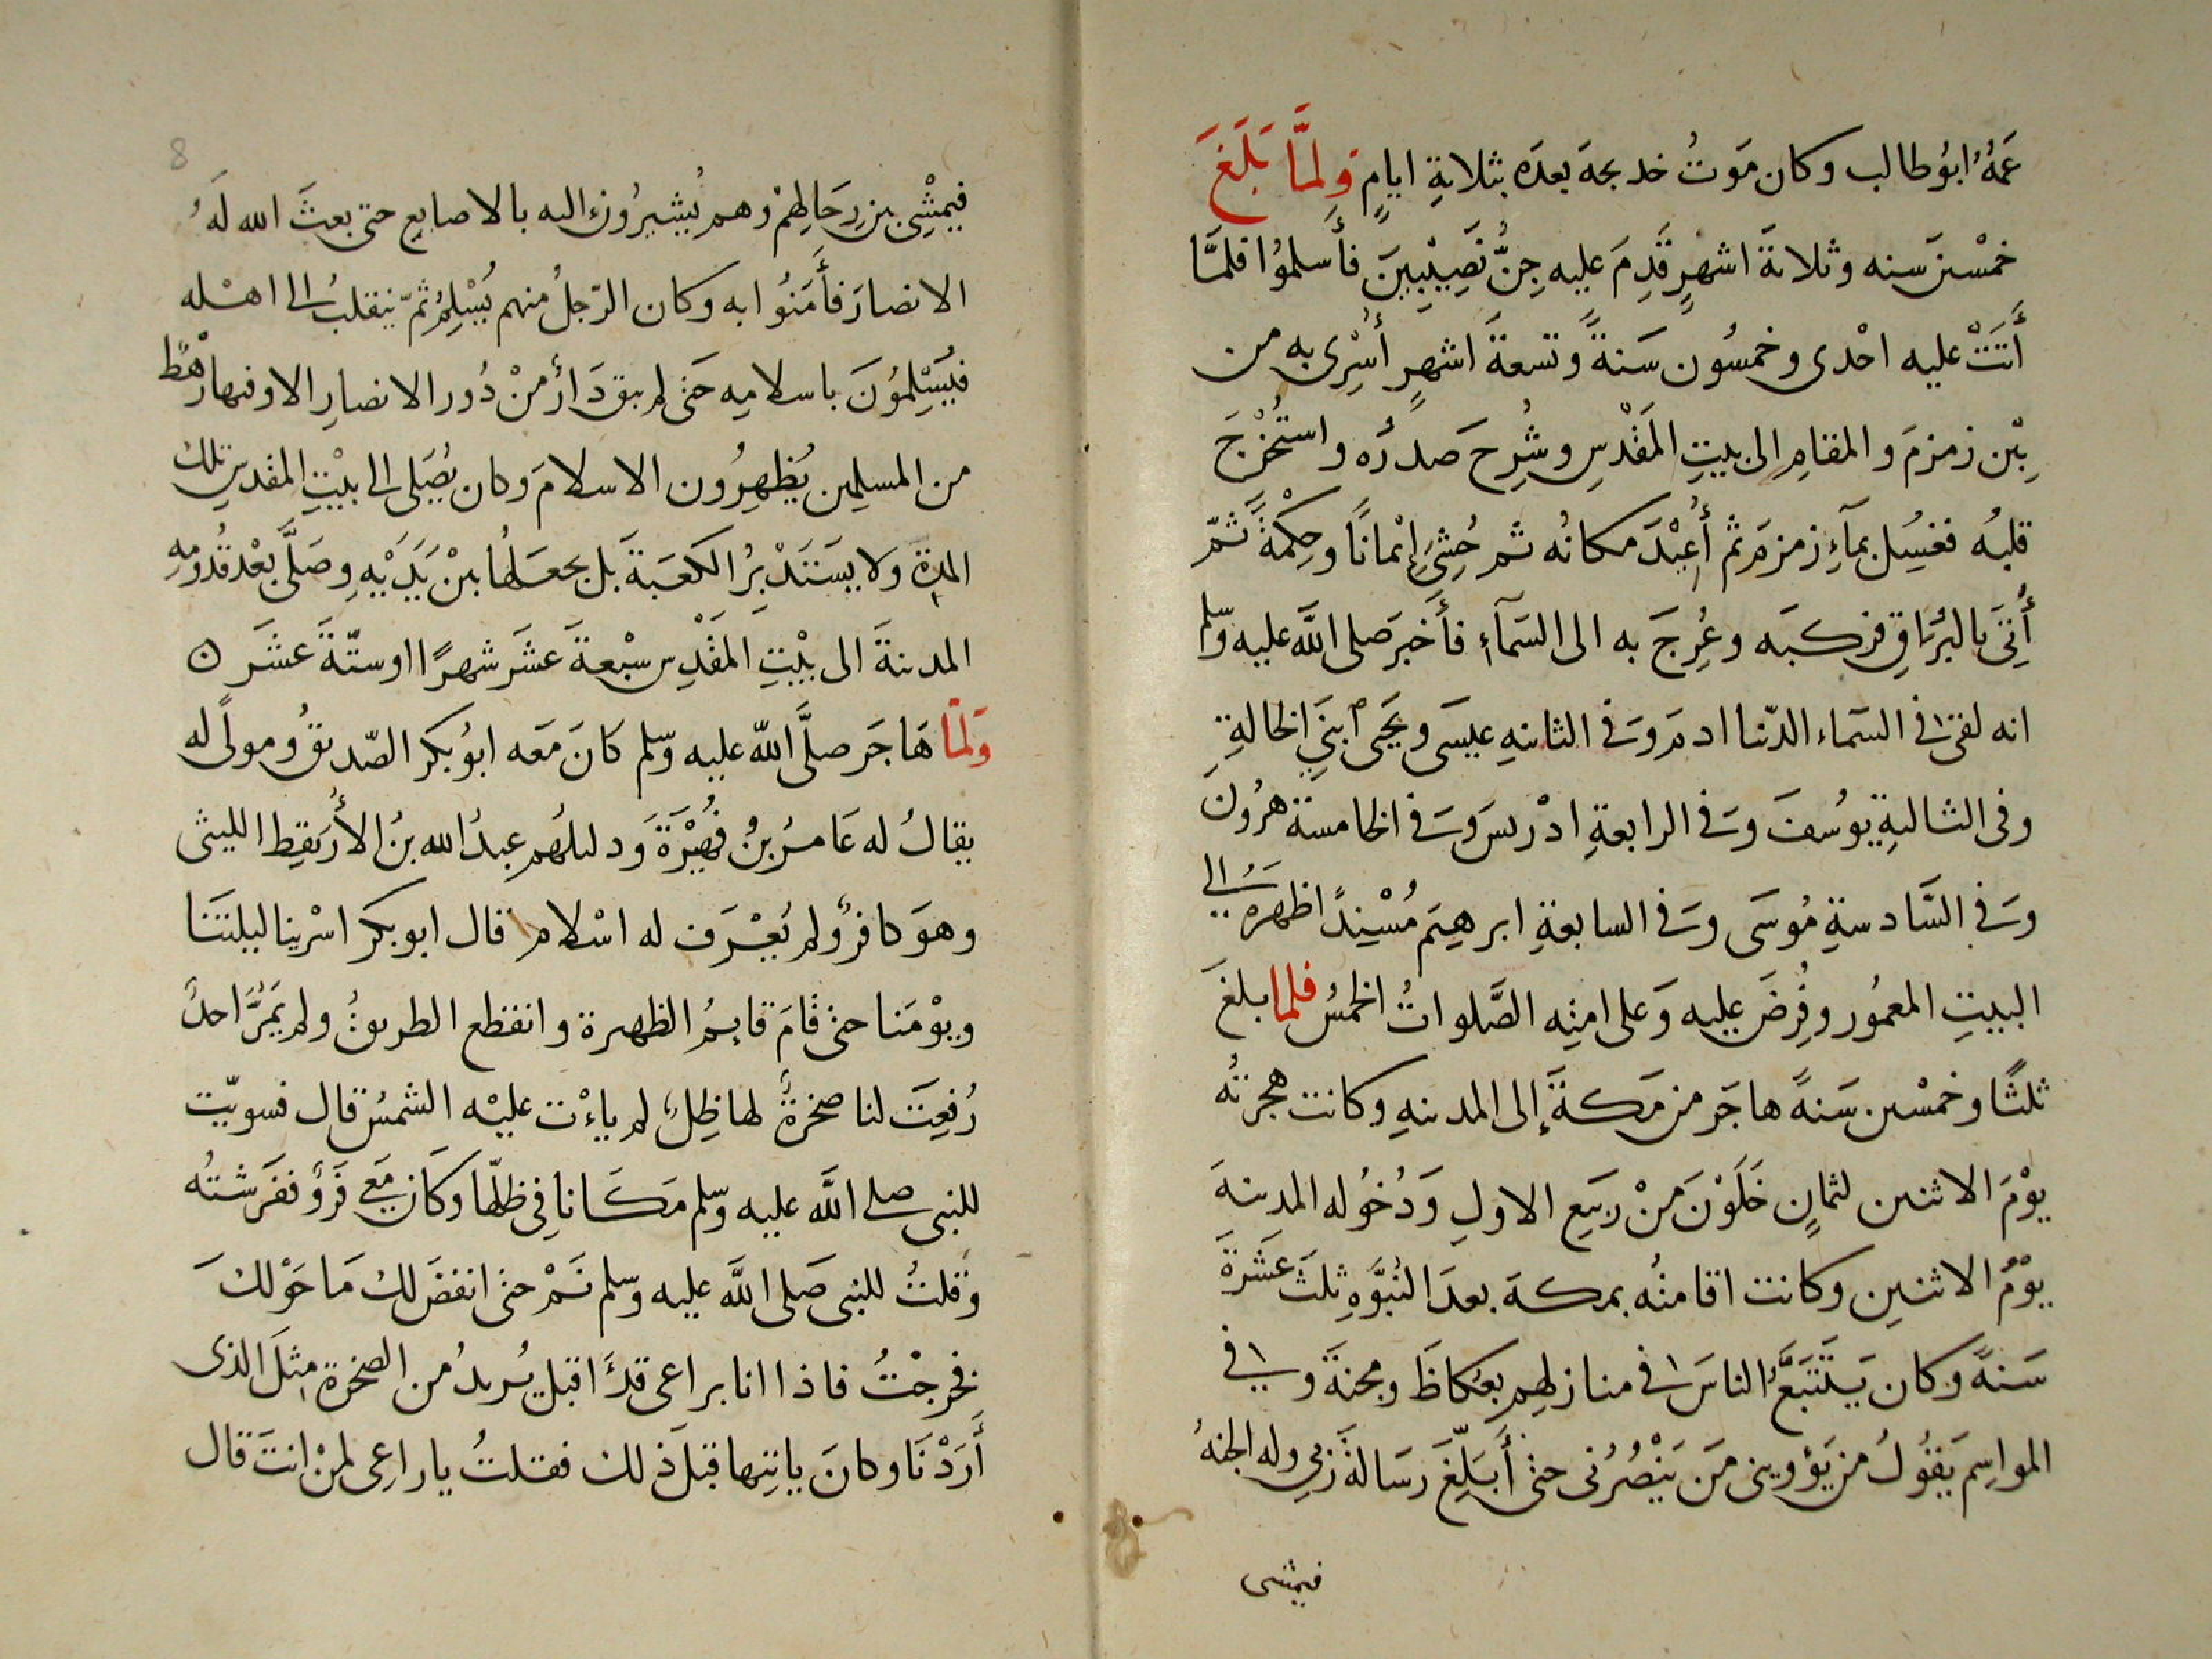 عَمُّهُ ابوُطالب وكان مَوتُ خديجةَ بعدَه بثلاثةِ ايامٍ وَلمَّا بَلَغَ
خمْسين سنه وثلاثةَ اشهرٍ قَدِمَ عليه جِنُّ نَصِيْبِيْنَ فأَسلموُا فلمَّا
أَتَتْ عليه احْدى وخمسُون سَنةً وتسعةَ اشهرٍ أُسْرِى به من
بيْن زمزمَ والمقامِ الى بيتِ المَقْدِسِ وشُرِحَ صدرُه واستُخْرِجَ
قلبُه فغسِل بمآءِ زمزمَ ثم أُعِيْدَ مكانُه ثم حُشِىَ إِيْمانًا وحِكْمةً ثمّ
أُتِىَ بالبُرَاقِ فركبَه وعُرِجَ به الى السَّمآءِ فأَخبرَ صلى اللَّه عليه وسّلم
انه لقى في السَماء الدّنيا ادمَ وَفي الثانيهِ عيسَى ويَحيَى ابنيَ الخالةِ
وفى الثالثةِ يوسُفَ وَفي الرابعةِ ادْريسَ وَفي الخامسَة هرُونَ
وَفي السَّادسةِ مُوسَى وَفي السابعةِ ابرهيمَ مُسْنِدًا ظهرَه الى
البيتِ المعمُور وفُرِضَ عليه وَعلى امتِه الصَّلواتُ الخمسُ فلما بلغَ
ثلثًا وخمْسين سَنةً هاجَر من مَكةَ إلى المدينهِ وكانت هجرتُه
يوْمَ الاثنين لثمانٍ خَلَوْنَ مِنْ ربَيعِ الاولِ وَدُخُوله المدينةَ
يوْمُ الاثنينِ وكانت اقامتُه بمكةَ بعدَ النُبوَّهِ ثلثَ عَشَرةَ
سَنةً وكان يَتَتَبَّعُ الناسَ في منازلهِم بعُكاظَ ومجنةَ وفي
المواسِم يَقوُلُ من يَؤوينى مَن يَنْصُرُنى حتى أُبَلِّغَ رسَالةَ ربي وله الجنهُ
فيمشى
8
فيمْشِى بين رِحَالِهِمْ وهم يُشيرُونَ اليه بالاصابع حتى بعثَ الله لَهُ
الانصارَ فأَمَنُوا به وكان الرّجلُ منهم يُسْلِمُ ثمّ ينقلبُ الى اهْله
فيُسْلِموُنَ باسلامِه حَتى لم يبق دَارٌ منْ دُور الانصارِ الا وفيها رَهْطٌ
من المسلِمين يُظهِرُون الاسلامَ وكان يُصَلى الى بيْتِ المقدسِ تلك
المدِة ولا يسَتَدْبِرُ الكَعَبةَ بل يجعَلُها بيْنَ يَدَيْهِ وصَلَّى بعْد قُدُومِهِ
المدينةَ الى بيْتِ المَقْدِس سبْعةَ عَشَر شهرًا اوستّةَ عَشَر
وَلمّا هَاجَر صلَّى اللّه عليه وسّلم كانَ مَعَه ابوُبكر الصّديقُ ومولًى له
يقالُ له عَامرُ بنُ فُهَيْرَةَ وَدليلُهم عبدُ الله بنُ الأُرَيقِط الليثى
وهوَ كافرٌ ولم يُعْرَف له اسْلام قال ابو بكر اسْرينا ليلتَنا
ويوْمَنا حتى قَامَ قايمُ الظهيرة وانقطع الطريقُ ولم يَمُرَّ احدٌ
رُفِعَت لنا صخرةٌ لها ظِلٌ لم ياءْت عليْه الشمسُ قال فسويّت
للنبى صلى اللَّه عليه وسّلم مَكَانا فى ظلّها وكَان مَعى فَروٌ ففَرشتُه
وَقلتُ للنبى صَلى اللَّه عليه وسّلم نَمْ حتى انفضَ لك مَا حَوْلكَ
فخرجْتُ فاذا انا براعى قدَ اقبل يُريدُ من الصخرة مِثلَ الذى
أَرَدْنَا وكانَ ياتيها قبَلَ ذلك فقلتُ يا راعِى لمِنْ انتَ قال